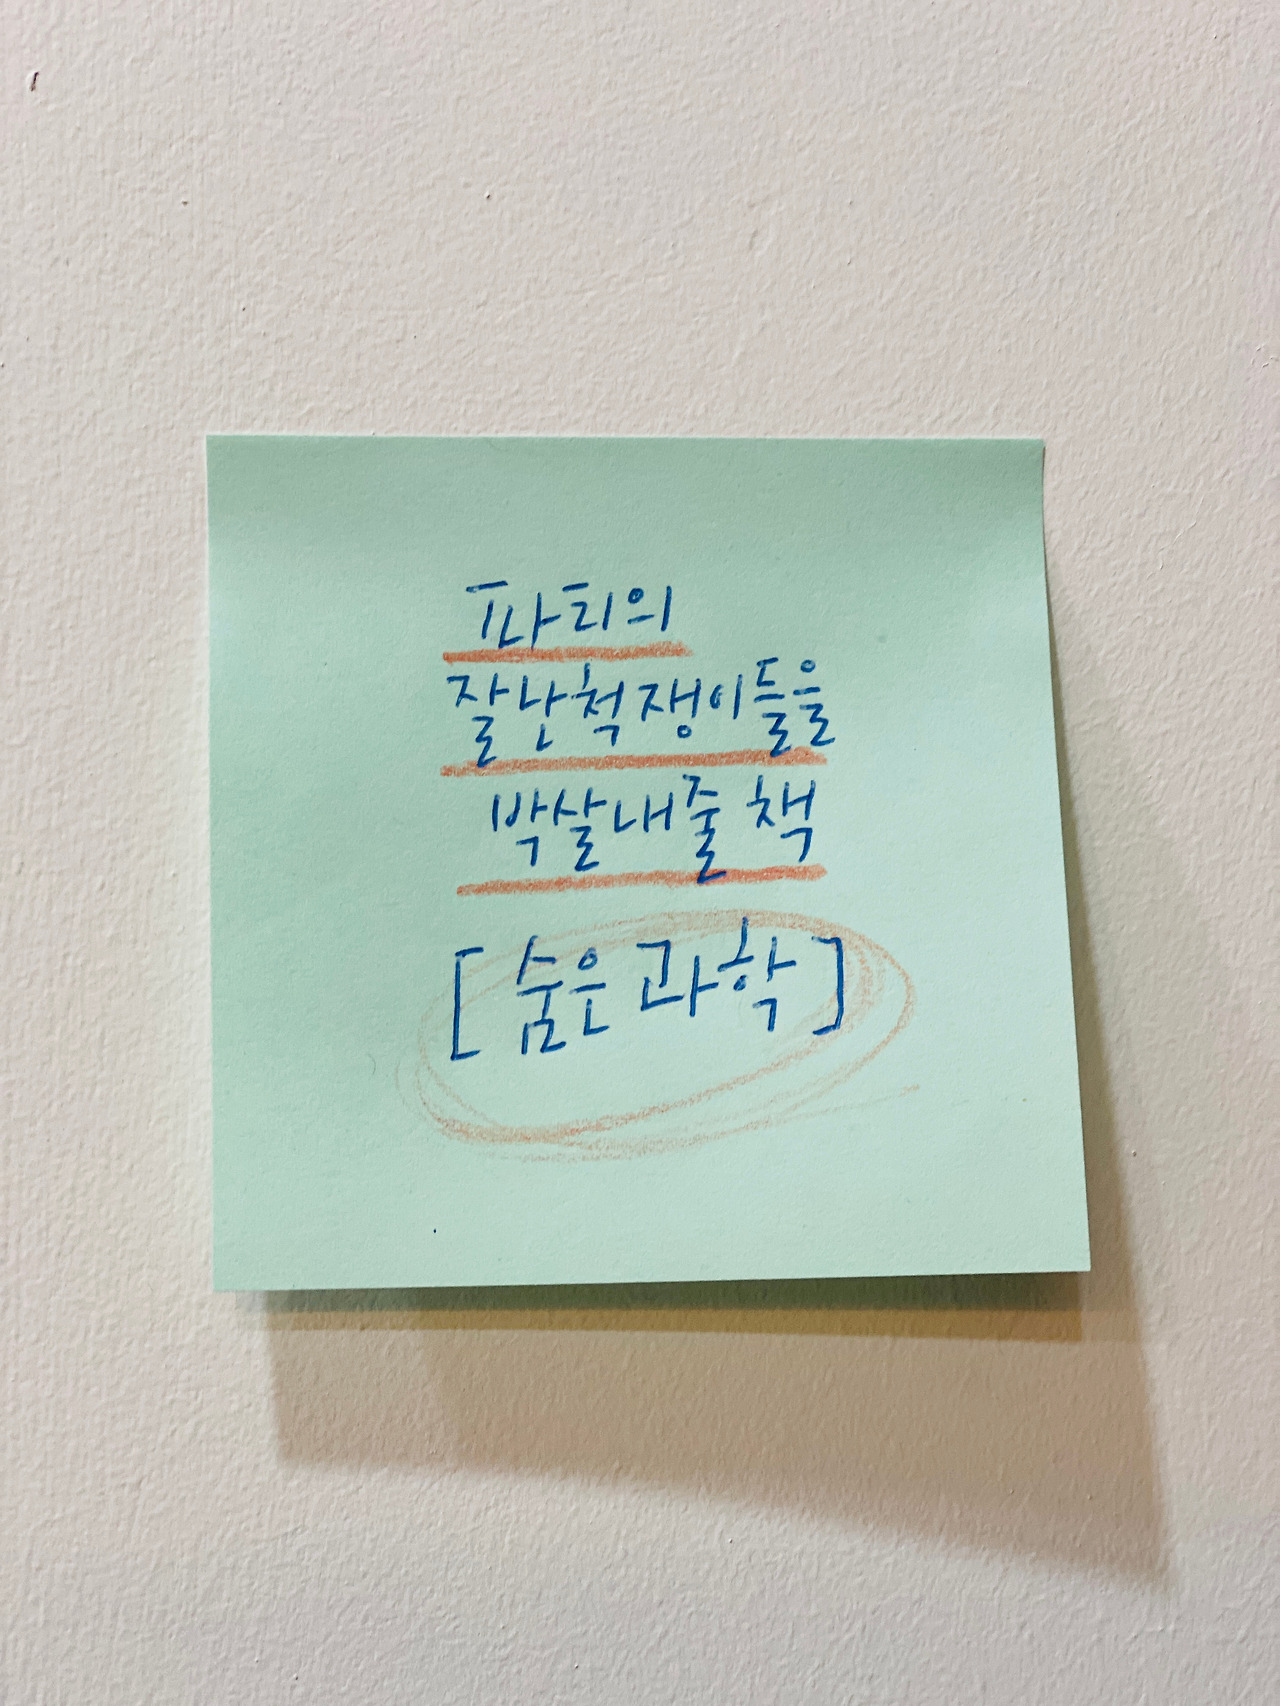 파티의
잘난척쟁이들을
박살내줄 책
[숨은 과학]